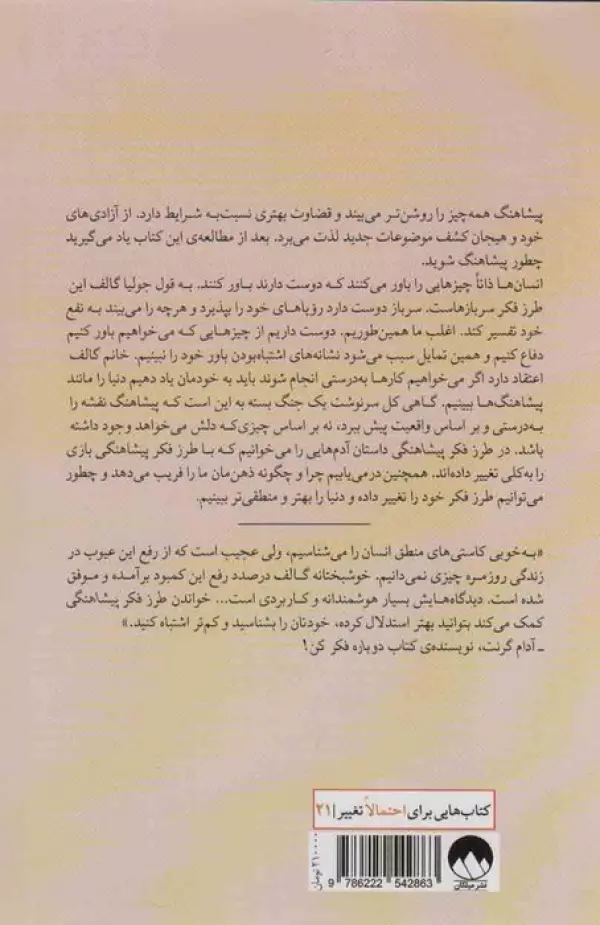 پیشاهنگ همه‌چیز را روشن‌تر می‌بیند و قضاوت بهتری نسبت‌به شرایط دارد. از آزادی‌های
خود و هیجان کشف موضوعات جدید لذت می‌برد. بعد از مطالعه‌ی این کتاب یاد می‌گیرید
چطور پیشاهنگ شوید.
انسان‌ها ذاتاً چیزهایی را باور می‌کنند که دوست دارند باور کنند. به قول جولیا گالف این
طرز فکر سربازهاست. سرباز دوست دارد رؤیاهای خود را بپذیرد و هرچه را می‌بیند به نفع
خود تفسیر کند. اغلب ما همین‌طوریم. دوست داریم از چیزهایی که می‌خواهیم باور کنیم
دفاع کنیم و همین تمایل سبب می‌شود نشانه‌های اشتباه‌بودن باور خود را نبینیم. خانم گالف
اعتقاد دارد اگر می‌خواهیم کارها به‌درستی انجام شوند باید به خودمان یاد دهیم دنیا را مانند
پیشاهنگ‌ها ببینیم. گاهی کل سرنوشت یک جنگ بسته به این است که پیشاهنگ نقشه را
به‌درستی و بر اساس واقعیت پیش ببرد، نه بر اساس چیزی‌که دلش می‌خواهد وجود داشته
باشد. در طرز فکر پیشاهنگی داستان آدم‌هایی را می‌خوانیم که با طرز فکر پیشاهنگی بازی
را به‌کلی تغییر داده‌اند. همچنین درمی‌یابیم چرا و چگونه ذهن‌مان ما را فریب می‌دهد و چطور
می‌توانیم طرز فکر خود را تغییر داده و دنیا را بهتر و منطقی‌تر ببینیم.
«به‌خوبی کاستی‌های منطق انسان را می‌شناسیم، ولی عجیب است که از رفع این عیوب در
زندگی روزمره چیزی نمی‌دانیم. خوشبختانه گالف درصدد رفع این کمبود برآمده و موفق
شده است. دیدگاه‌هایش بسیار هوشمندانه و کاربردی است... خواندن طرز فکر پیشاهنگی
کمک می‌کند بتوانید بهتر استدلال کرده، خودتان را بشناسید و کم‌تر اشتباه کنید.»
ـ آدام گرنت، نویسنده‌ی کتاب دوباره فکر کن!
کتاب‌هایی برای احتمالاً تغییر | ۲۱
۲۱۰۰۰۰ تومان
نشر میلکان
9 786222 542863